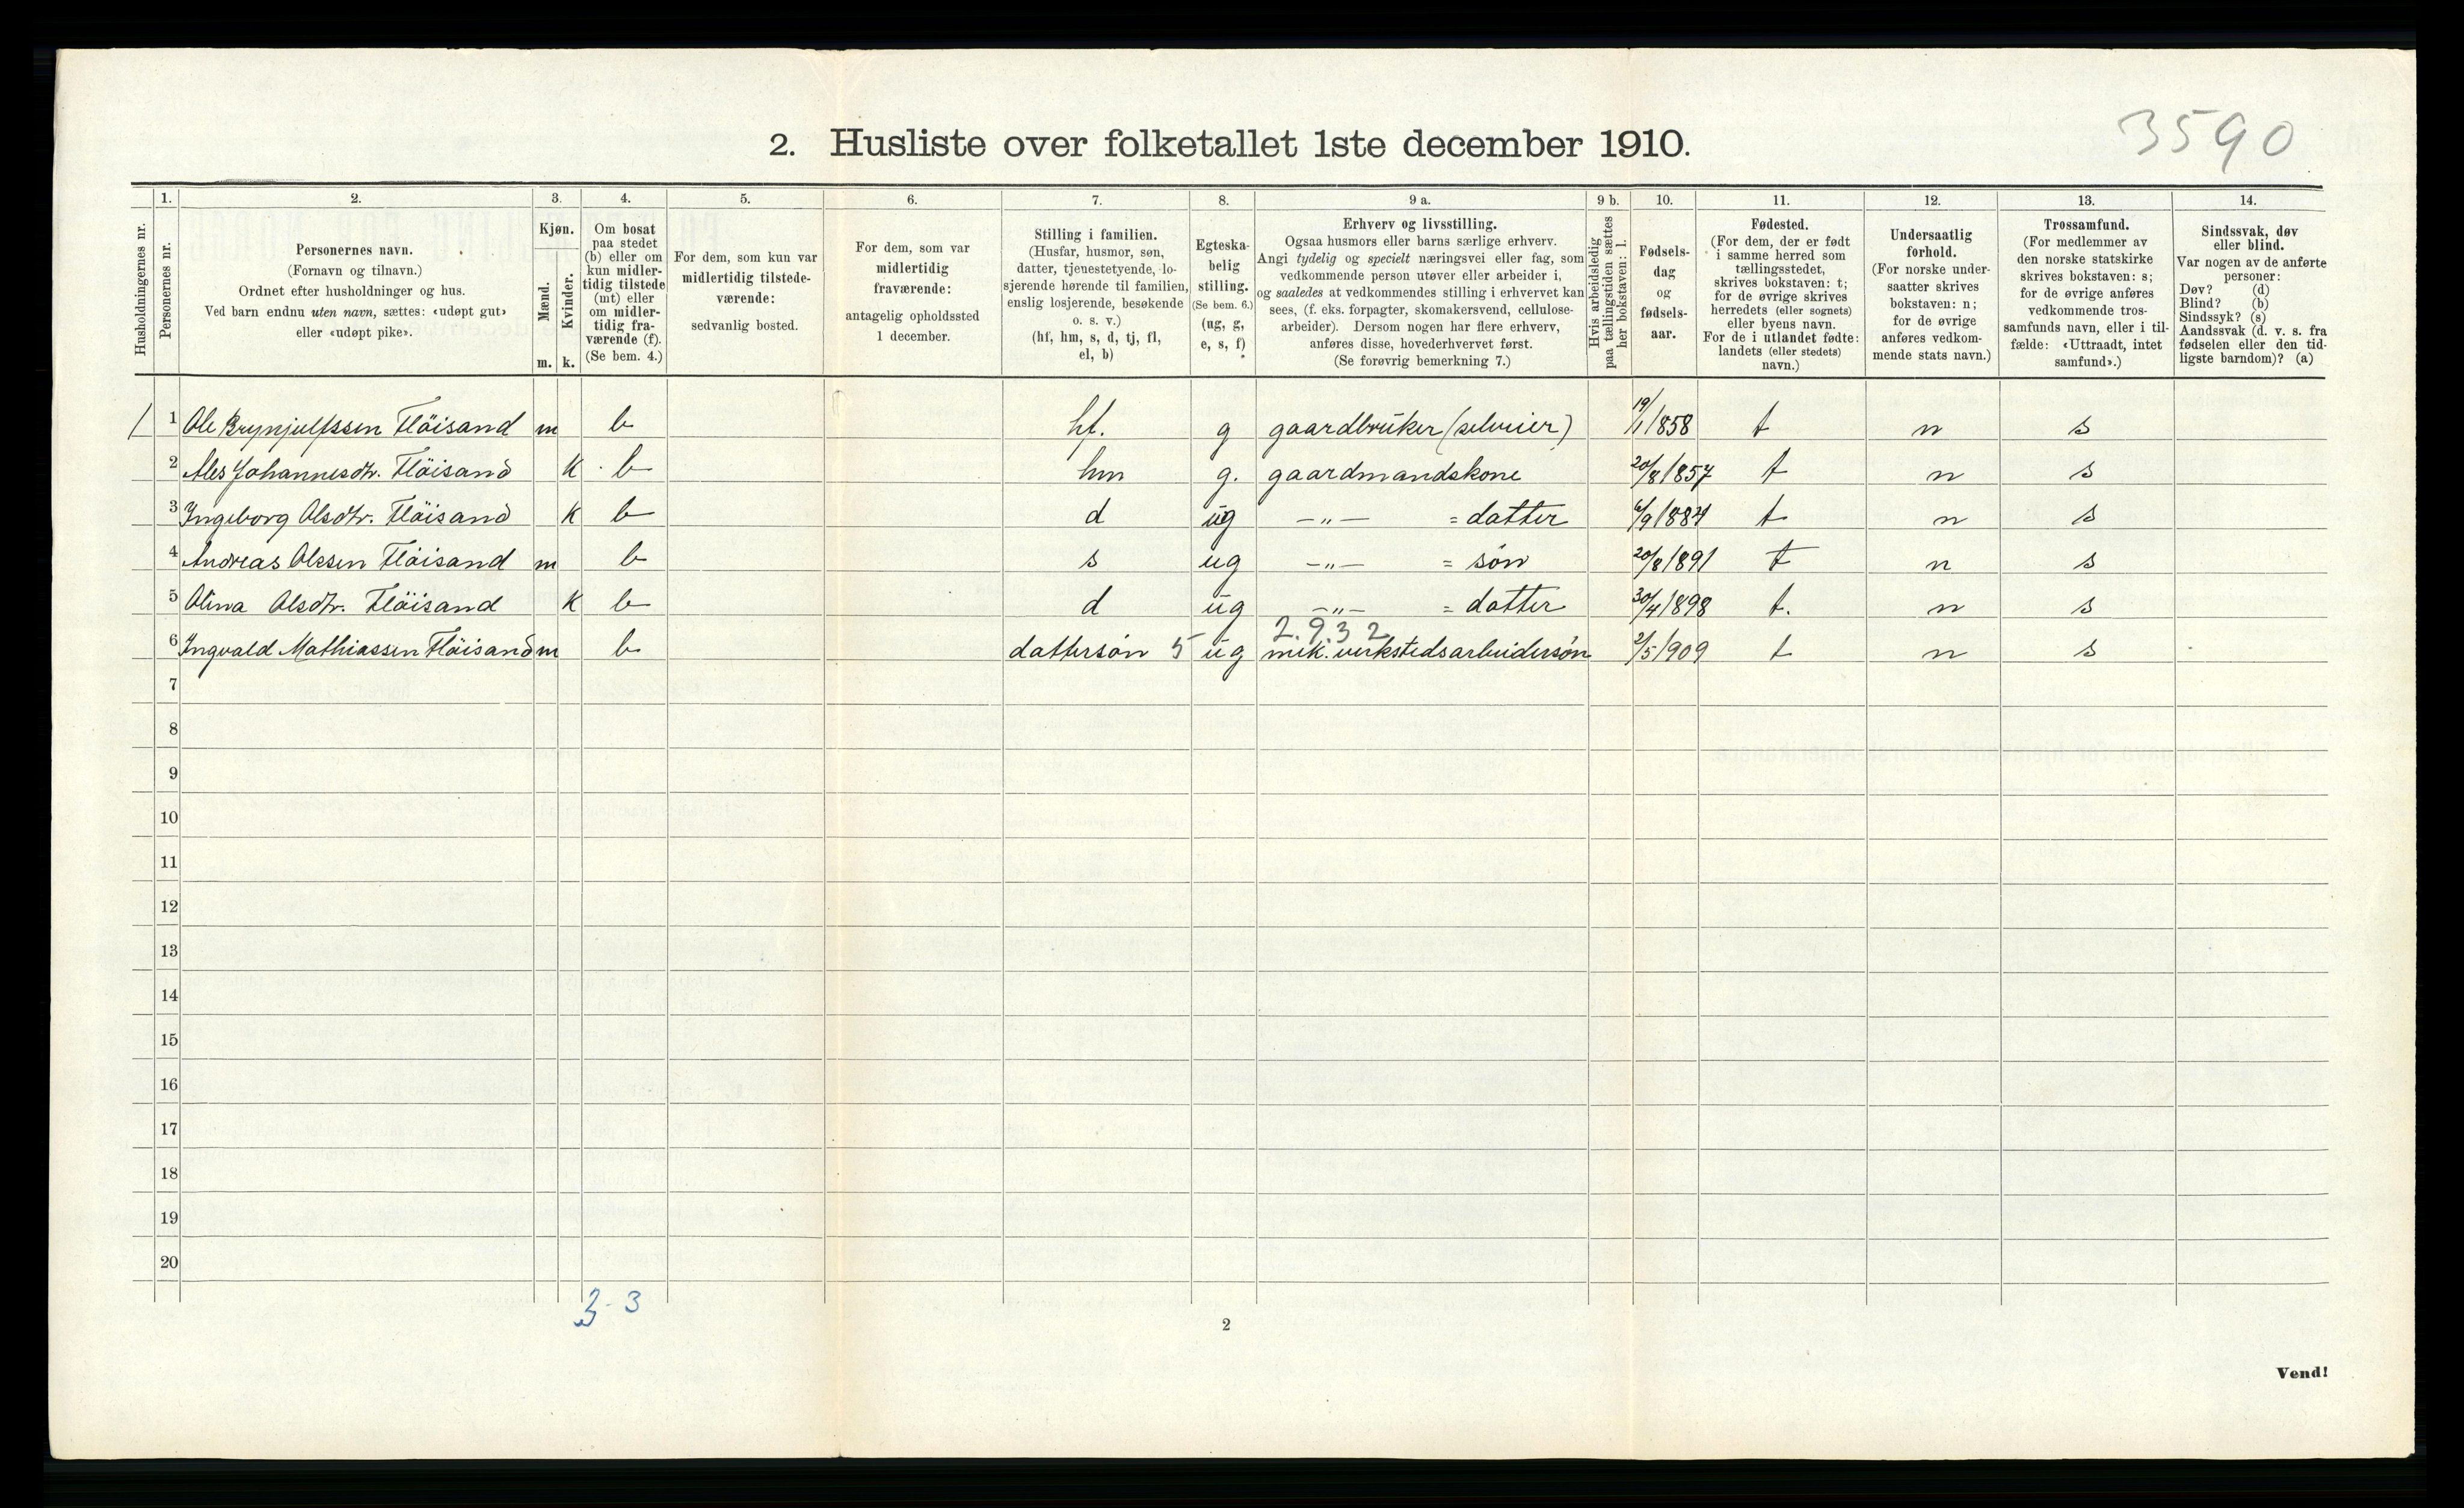 3590
2. Husliste over folketallet 1ste december 1910.
Husholdningernes nr.
1.
Personernes nr.
2.
Personernes navn.
(Fornavn og tilnavn.)
Ordnet efter husholdninger og hus.
Ved barn endnu uten navn, sættes: «udøpt gut»
eller «udøpt pike».
3.
Kjøn.
Mænd.
Kvinder.
m. k.
4.
Om bosat
paa stedet
(b) eller om
kun midler-
tidig tilstede
(mt) eller
om midler-
tidig fra-
værende (f).
(Se bem. 4.)
5.
For dem, som kun var
midlertidig tilstede-
værende:
sedvanlig bosted.
6.
For dem, som var
midlertidig
fraværende:
antagelig opholdssted
1 december.
7.
Stilling i familien.
(Husfar, husmor, søn,
datter, tjenestetyende, lo-
sjerende hørende til familien,
enslig losjerende, besøkende
o. s. v.)
(hf, hm, s, d, tj, fl,
el, b)
8.
Egteska-
belig
stilling.
(Se bem. 6.)
(ug, g,
e, s, f)
9 a.
Erhverv og livsstilling.
Ogsaa husmors eller barns særlige erhverv.
Angi tydelig og specielt næringsvei eller fag, som
vedkommende person utøver eller arbeider i,
og saaledes at vedkommendes stilling i erhvervet kan
sees, (f. eks. forpagter, skomakersvend, cellulose-
arbeider). Dersom nogen har flere erhverv,
anføres disse, hovederhvervet først.
(Se forøvrig bemerkning 7.)
9 b.
Hvis arbeidsledig
paa tællingstiden sættes
her bokstaven: l.
10.
Fødsels-
dag
og
fødsels-
aar.
11.
Fødested.
(For dem, der er født
i samme herred som
tællingsstedet,
skrives bokstaven: t;
for de øvrige skrives
herredets (eller sognets)
eller byens navn.
For de i utlandet fødte:
landets (eller stedets)
navn.)
12.
Undersaatlig
forhold.
(For norske under-
saatter skrives
bokstaven: n;
for de øvrige
anføres vedkom-
mende stats navn.)
13.
Trossamfund.
(For medlemmer av
den norske statskirke
skrives bokstaven: s;
for de øvrige anføres
vedkommende tros-
samfunds navn, eller i til-
fælde: «Uttraadt, intet
samfund».)
14.
Sindssvak, døv
eller blind.
Var nogen av de anførte
personer:
Døv? (d)
Blind? (b)
Sindssyk? (s)
Aandssvak (d. v. s. fra
fødselen eller den tid-
ligste barndom)? (a)
1 1 Ole Brynjulfssen Fläisand m b hf. g gaardbruker (selveier) 19/1 1858 t n s
2 Ales Johannesdtr. Fläisand K b hm g. gaardmandskone 20/8 1857 t n s
3 Ingeborg Olsdtr. Fläisand K b d ug -„- = datter 6/9 1884 t n s
4 Andreas Olssen Fläisand m b s ug -„- = søn 20/8 1891 t n s
5 Olina Olsdtr. Fläisand K b d ug -„- = datter 30/4 1898 t. n s
2.9.32
6 Ingvald Mathiassen Fläisand m b dattersøn 5 ug mek. verkstedsarbeidersøn 2/5 1909 t n s
7
8
9
10
11
12
13
14
15
16
17
18
19
20
3-3
2
Vend!